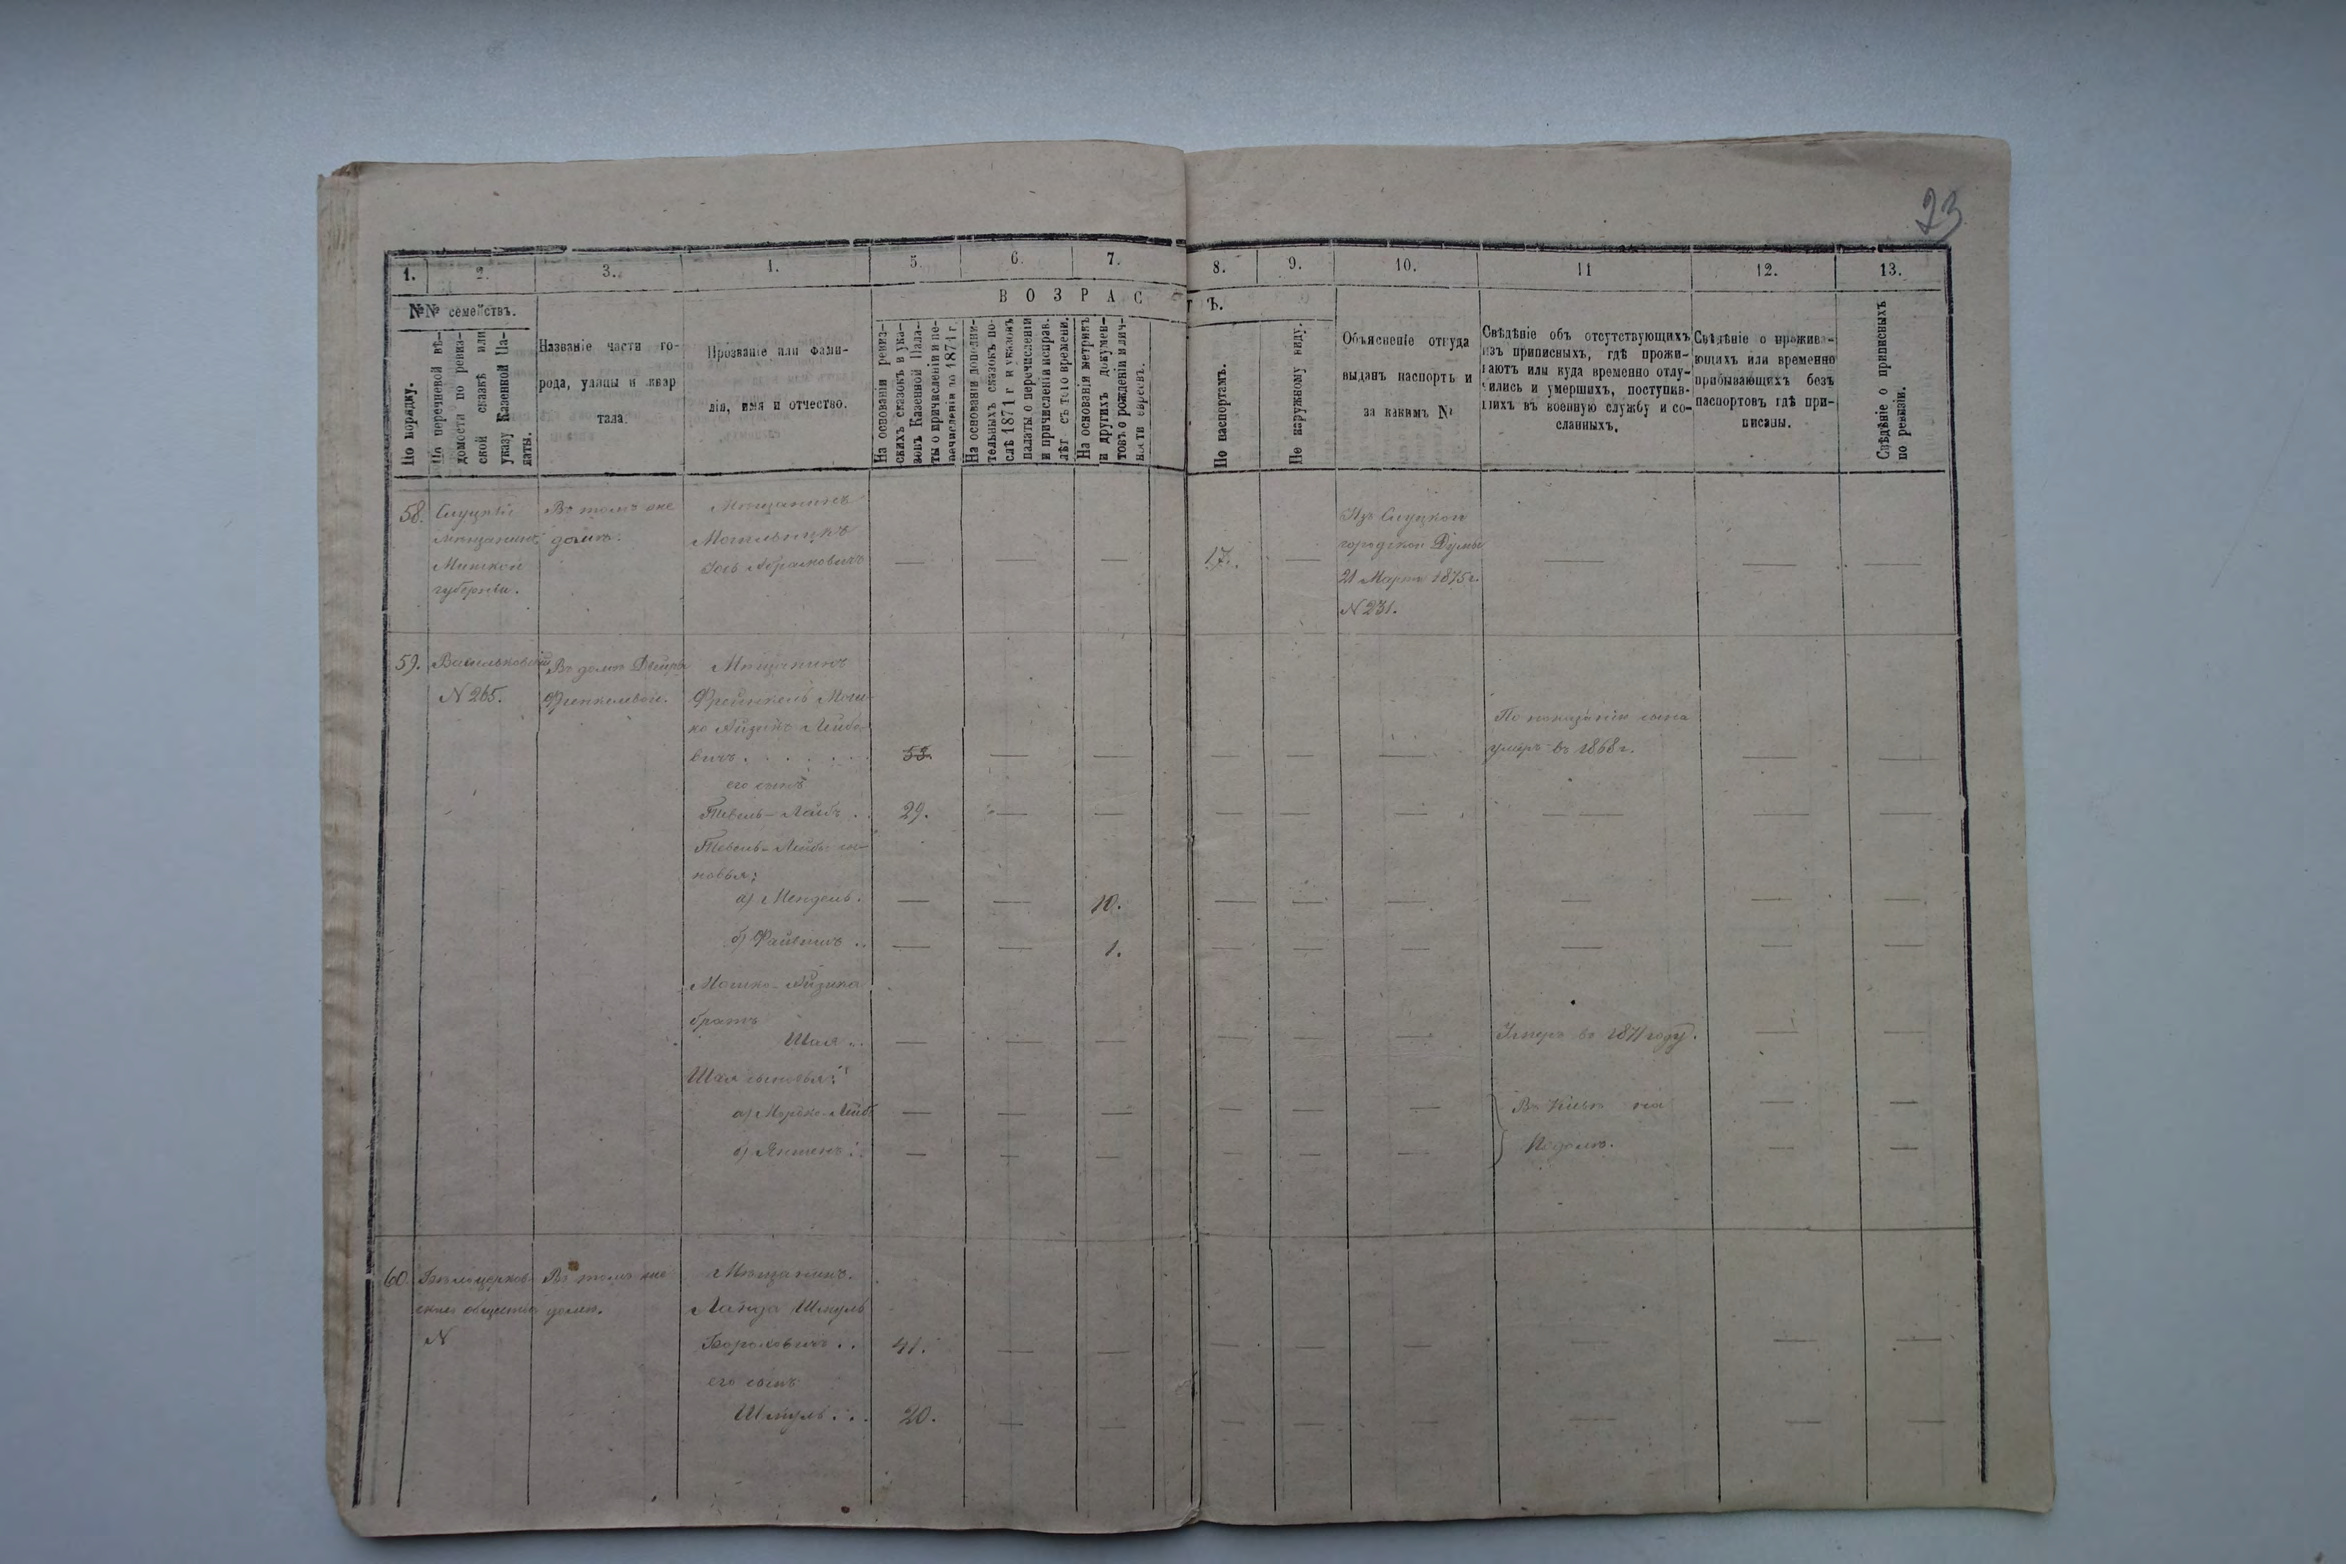 23
1. 2. 3. 4. 5. 6. 7. 8. 9. 10. 11 12. 13.
№№ семействъ.
По порядку.
По перечневой вѣ-
домости по ревиз-
ской сказкѣ или
указу Казенной Па-
латы.
Названіе части го-
рода, улицы и квар
тала.
Прозваніе или фами-
лія, имя и отчество.
ВОЗРАСТЪ.
На основаніи ревиз-
скихъ сказокъ и ука-
зовъ Казенной Пала-
ты о причисленіи и пе-
речисленіи до 1871 г.
На основаніи дополни-
тельныхъ сказокъ по-
слѣ 1871 г. и указовъ
палаты о перечисленіи
и причисленіи исправ.
лѣт съ того времени.
На основаніи метрикъ
и другихъ докумен-
товъ о рожденіи и лич-
ности евреевъ.
По паспортамъ.
По наружному виду.
Объясненіе откуда
выданъ паспортъ и
за какимъ №
Свѣдѣніе объ отсутствующихъ
изъ приписныхъ, гдѣ прожи-
ваютъ или куда временно отлу-
чились и умершихъ, поступив-
шихъ въ военную службу и со-
сланныхъ.
Свѣдѣніе о прожива-
ющихъ или временно
прибывающихъ безъ
паспортовъ гдѣ при-
писаны.
Свѣдѣніе о приписныхъ
по ревизіи.
58.
Слуцкій
мѣщанинъ
Минской
губерніи.
Въ томъ же
домѣ.
Мѣщанинъ
Могильницкъ
Іось Абрамовичъ
17.
Изъ Слуцкой
городской Думы
21 Марта 1875 г.
N 231.
59.
Васильковскій
N 265.
Въ домѣ Двейры
Френкелевой.
Мѣщанинъ
Френкель Мош-
ко Айзикъ Лейбо-
вичъ . . . . . .
53.
По показанію сына
умеръ въ 1868 г.
его сынъ
Тевель-Лейбъ .
29.
Тевель-Лейба сы-
новья:
а) Мендель.
10.
б) Файвишъ ..
1.
Мошко-Айзика
братъ
Шая ..
Умеръ въ 1871 году.
Шаи сыновья:
а) Мордко-Лейбъ
б) Янкель..
Въ Кіевѣ на
Подолѣ.
60.
Бѣлоцерков-
скаго общества
N
Въ томъ же
домѣ.
Мѣщанинъ.
Ланда Шмуль
Бороховичъ ..
41.
его сынъ
Шмуль...
20.